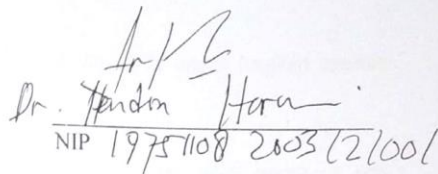 Dr. Hendra Harun
NIP 19751108 200312 1 001